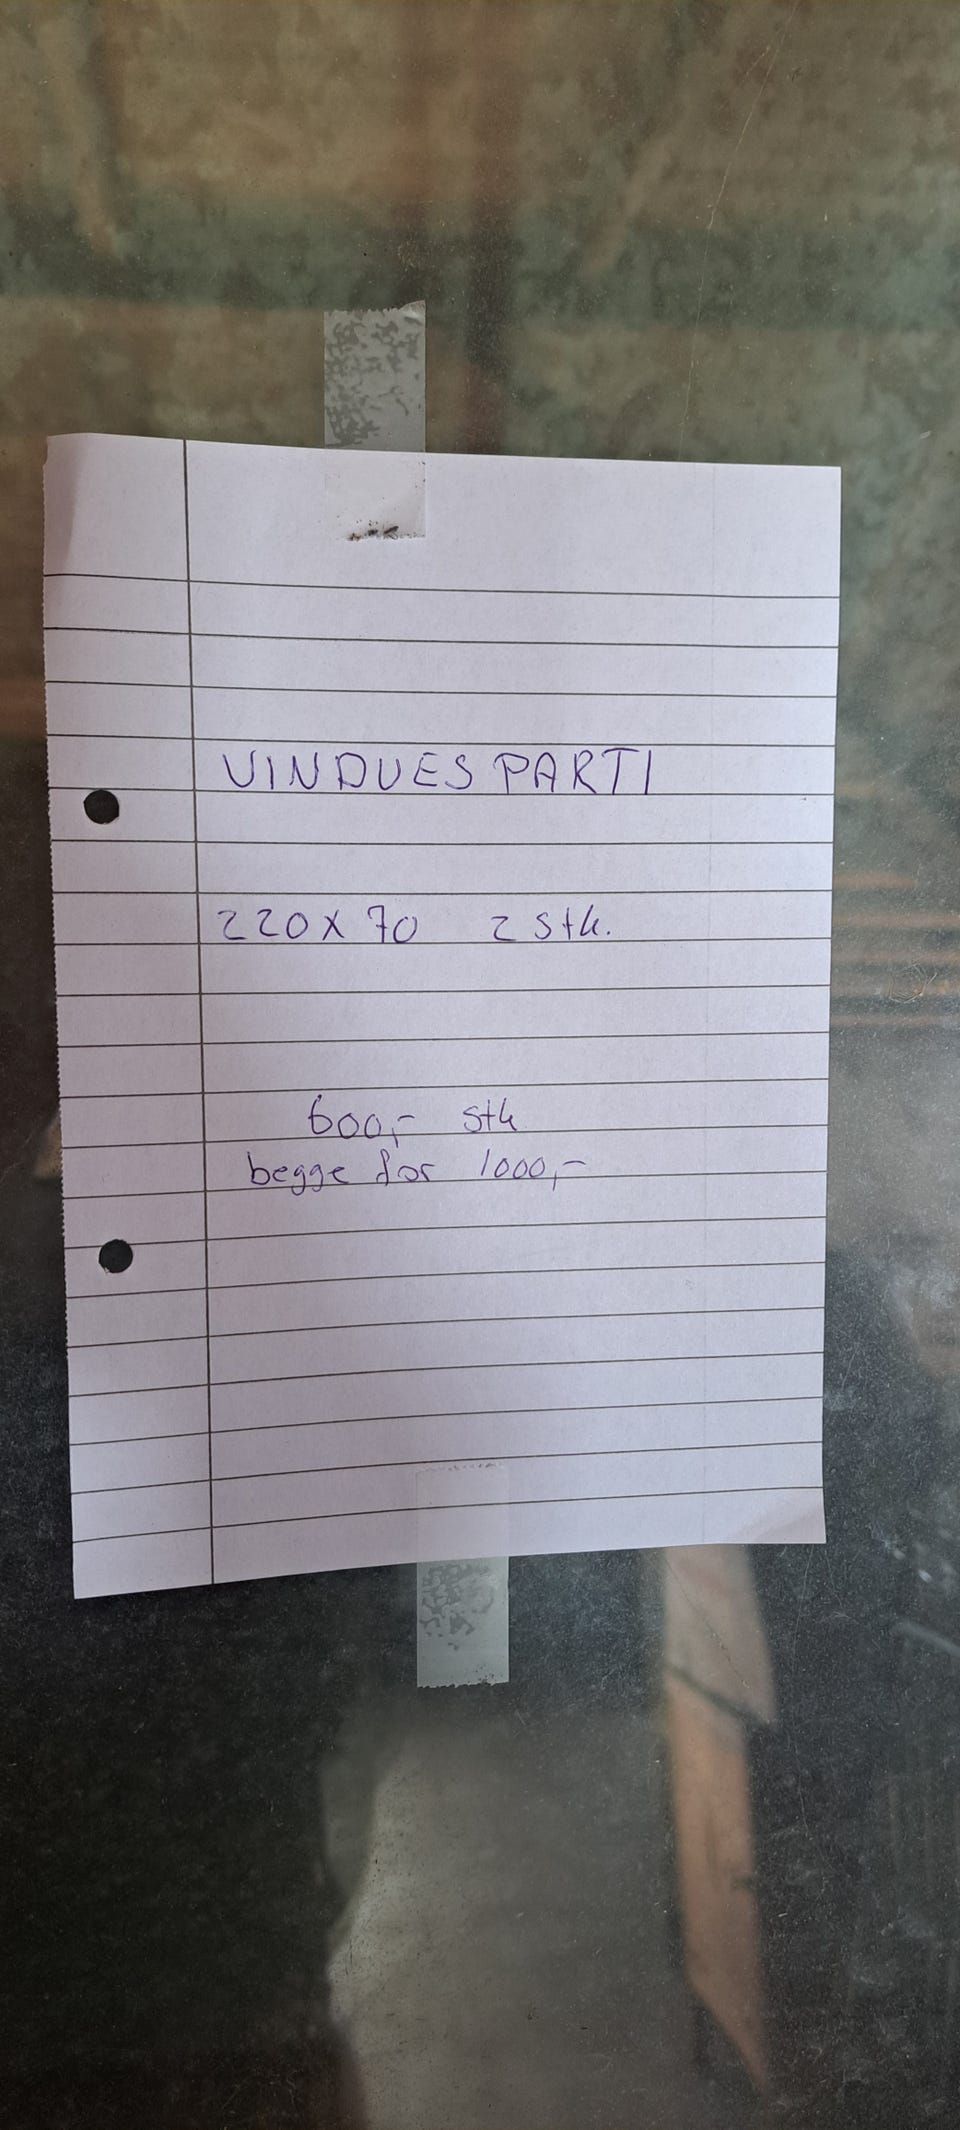 VINDUES PARTI
220 x 70 2 stk.
600,- stk
begge for 1000,-